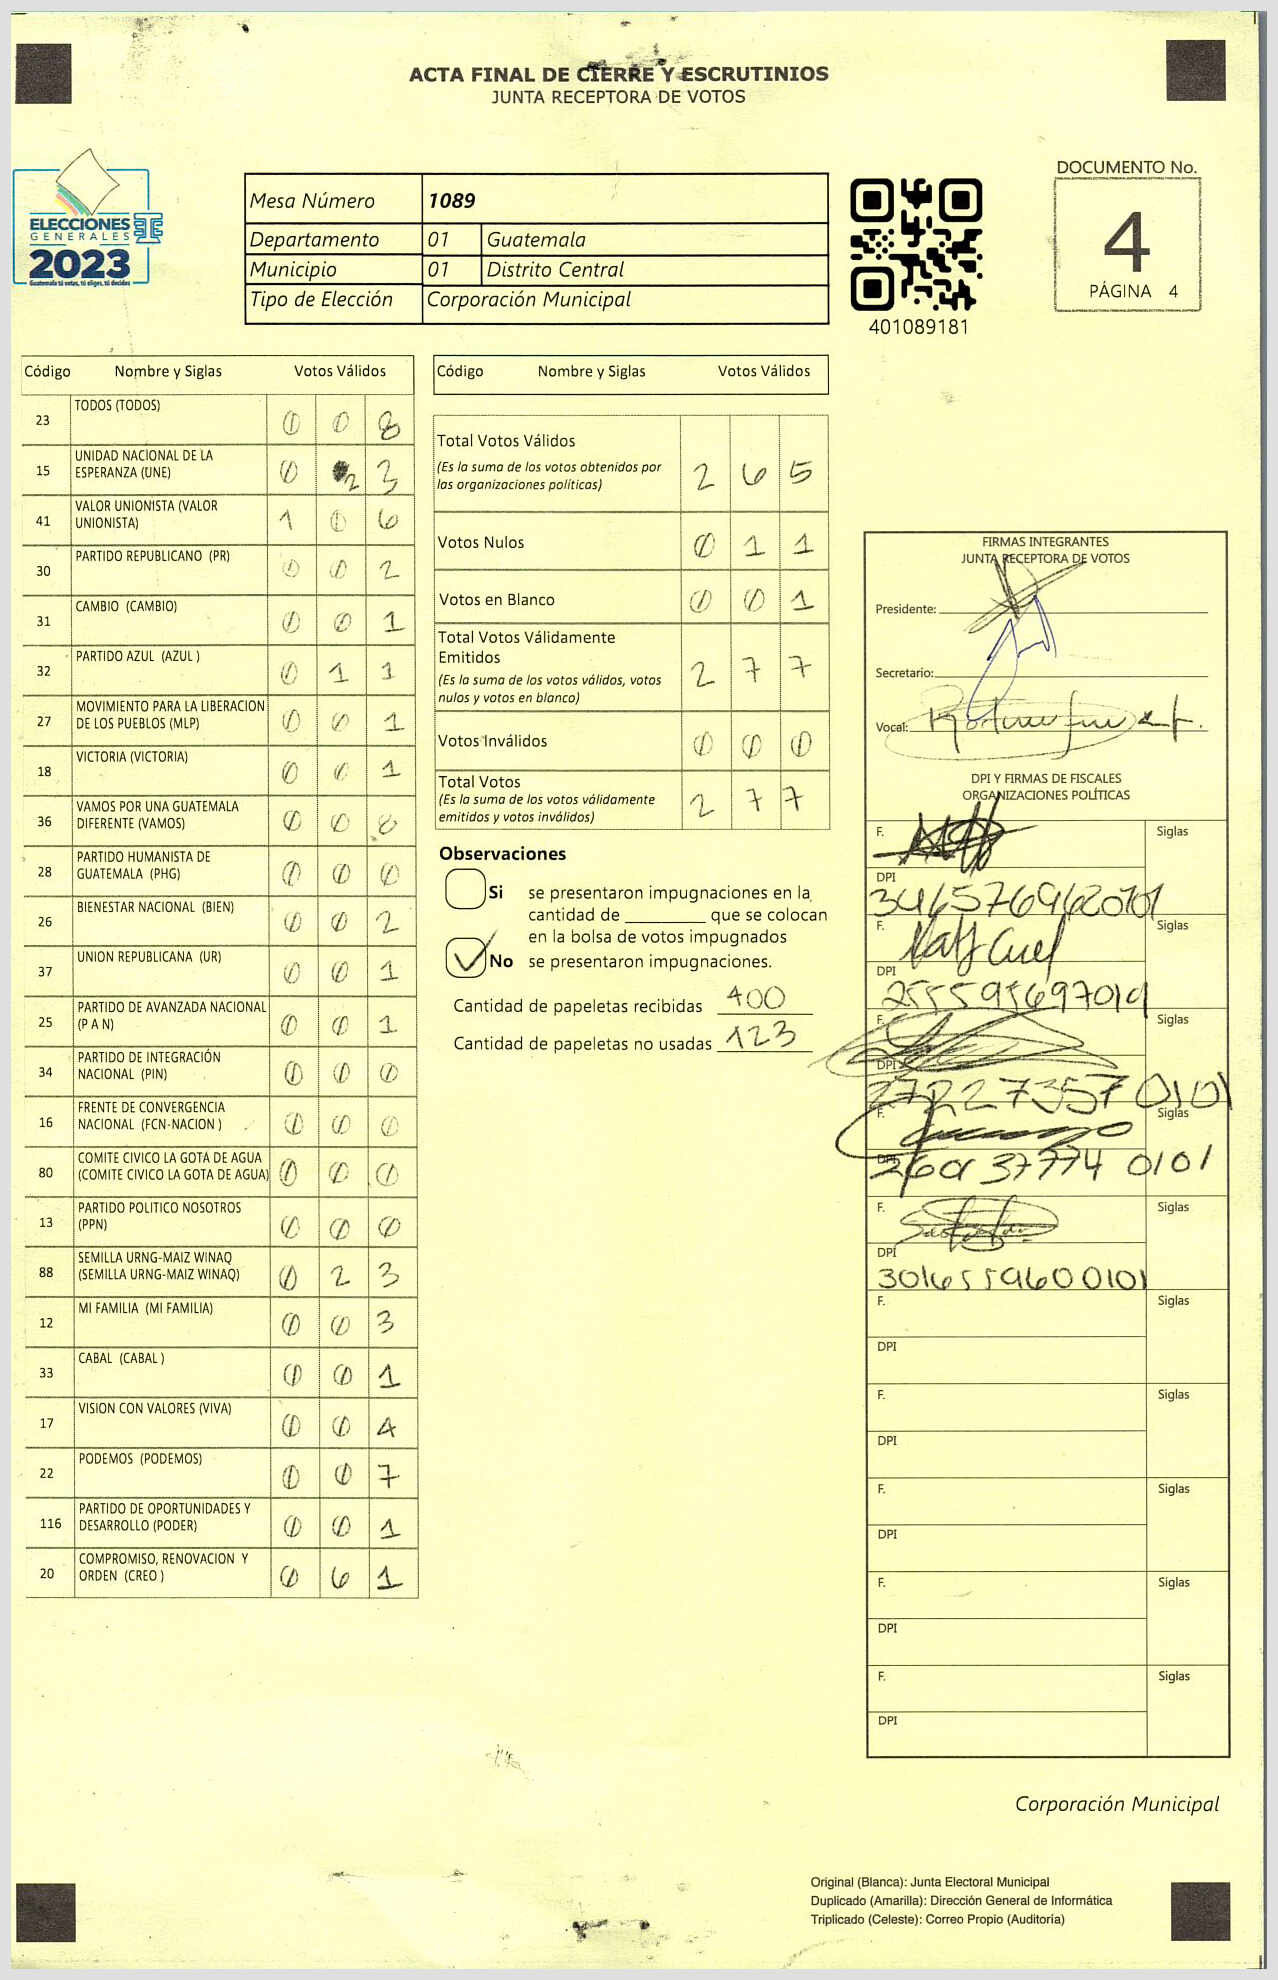 ACTA FINAL DE CIERRE Y ESCRUTINIOS
JUNTA RECEPTORA DE VOTOS
ELECCIONES
GENERALES
2023
Guatemala tú votas, tú eliges, tú decides
Mesa Número 1089
Departamento 01 Guatemala
Municipio 01 Distrito Central
Tipo de Elección Corporación Municipal
401089181
DOCUMENTO No.
4
PÁGINA 4
Código Nombre y Siglas Votos Válidos
23 TODOS (TODOS) 0 0 8
15 UNIDAD NACIONAL DE LA
ESPERANZA (UNE) 0 2 3
41 VALOR UNIONISTA (VALOR
UNIONISTA) 1 0 6
30 PARTIDO REPUBLICANO (PR) 0 0 2
31 CAMBIO (CAMBIO) 0 0 1
32 PARTIDO AZUL (AZUL ) 0 1 1
27 MOVIMIENTO PARA LA LIBERACION
DE LOS PUEBLOS (MLP) 0 0 1
18 VICTORIA (VICTORIA) 0 0 1
36 VAMOS POR UNA GUATEMALA
DIFERENTE (VAMOS) 0 0 8
28 PARTIDO HUMANISTA DE
GUATEMALA (PHG) 0 0 0
26 BIENESTAR NACIONAL (BIEN) 0 0 2
37 UNION REPUBLICANA (UR) 0 0 1
25 PARTIDO DE AVANZADA NACIONAL
(P A N) 0 0 1
34 PARTIDO DE INTEGRACIÓN
NACIONAL (PIN) 0 0 0
16 FRENTE DE CONVERGENCIA
NACIONAL (FCN-NACION ) 0 0 0
80 COMITE CIVICO LA GOTA DE AGUA
(COMITE CIVICO LA GOTA DE AGUA) 0 0 0
13 PARTIDO POLITICO NOSOTROS
(PPN) 0 0 0
88 SEMILLA URNG-MAIZ WINAQ
(SEMILLA URNG-MAIZ WINAQ) 0 2 3
12 MI FAMILIA (MI FAMILIA) 0 0 3
33 CABAL (CABAL ) 0 0 1
17 VISION CON VALORES (VIVA) 0 0 4
22 PODEMOS (PODEMOS) 0 0 7
116 PARTIDO DE OPORTUNIDADES Y
DESARROLLO (PODER) 0 0 1
20 COMPROMISO, RENOVACION Y
ORDEN (CREO ) 0 6 1
Código Nombre y Siglas Votos Válidos
Total Votos Válidos
(Es la suma de los votos obtenidos por
las organizaciones políticas) 2 6 5
Votos Nulos 0 1 1
Votos en Blanco 0 0 1
Total Votos Válidamente
Emitidos
(Es la suma de los votos válidos, votos
nulos y votos en blanco) 2 7 7
Votos Inválidos 0 0 0
Total Votos
(Es la suma de los votos válidamente
emitidos y votos inválidos) 2 7 7
Observaciones
Si se presentaron impugnaciones en la
cantidad de ________ que se colocan
en la bolsa de votos impugnados
No se presentaron impugnaciones.
Cantidad de papeletas recibidas 400
Cantidad de papeletas no usadas 123
FIRMAS INTEGRANTES
JUNTA RECEPTORA DE VOTOS
Presidente:
Secretario:
Vocal:
DPI Y FIRMAS DE FISCALES
ORGANIZACIONES POLÍTICAS
F. Siglas
DPI
F. Siglas
DPI
F. Siglas
DPI 272273570101
F. Siglas
DPI
F. Siglas
DPI 3016559600101
F. Siglas
DPI
F. Siglas
DPI
F. Siglas
DPI
F. Siglas
DPI
F. Siglas
DPI
Corporación Municipal
Original (Blanca): Junta Electoral Municipal
Duplicado (Amarilla): Dirección General de Informática
Triplicado (Celeste): Correo Propio (Auditoría)